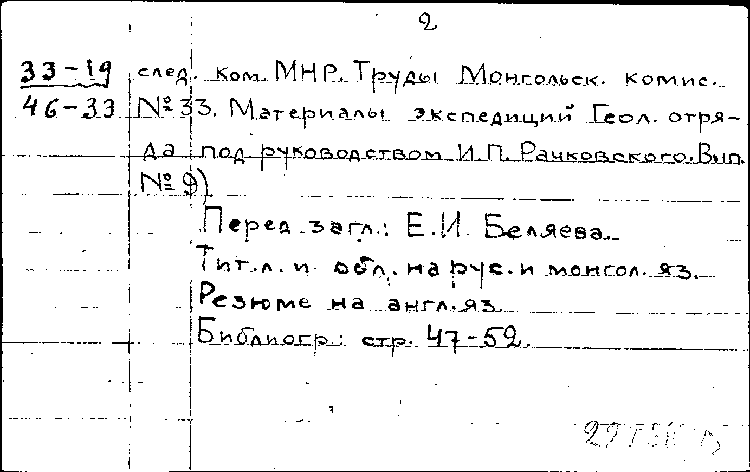 2
33-19 след. ком. МНР. Труды Монгольск. комис.
46-33 №33. Материалы экспедиций Геол. отря-
да под руководством И.П. Рачковского. Вып.
№ 9)
Перед загл.: Е.И. Беляева.
Тит. л. и обл. на рус. и монгол. яз.
Резюме на англ. яз.
Библиогр: стр. 47-52.